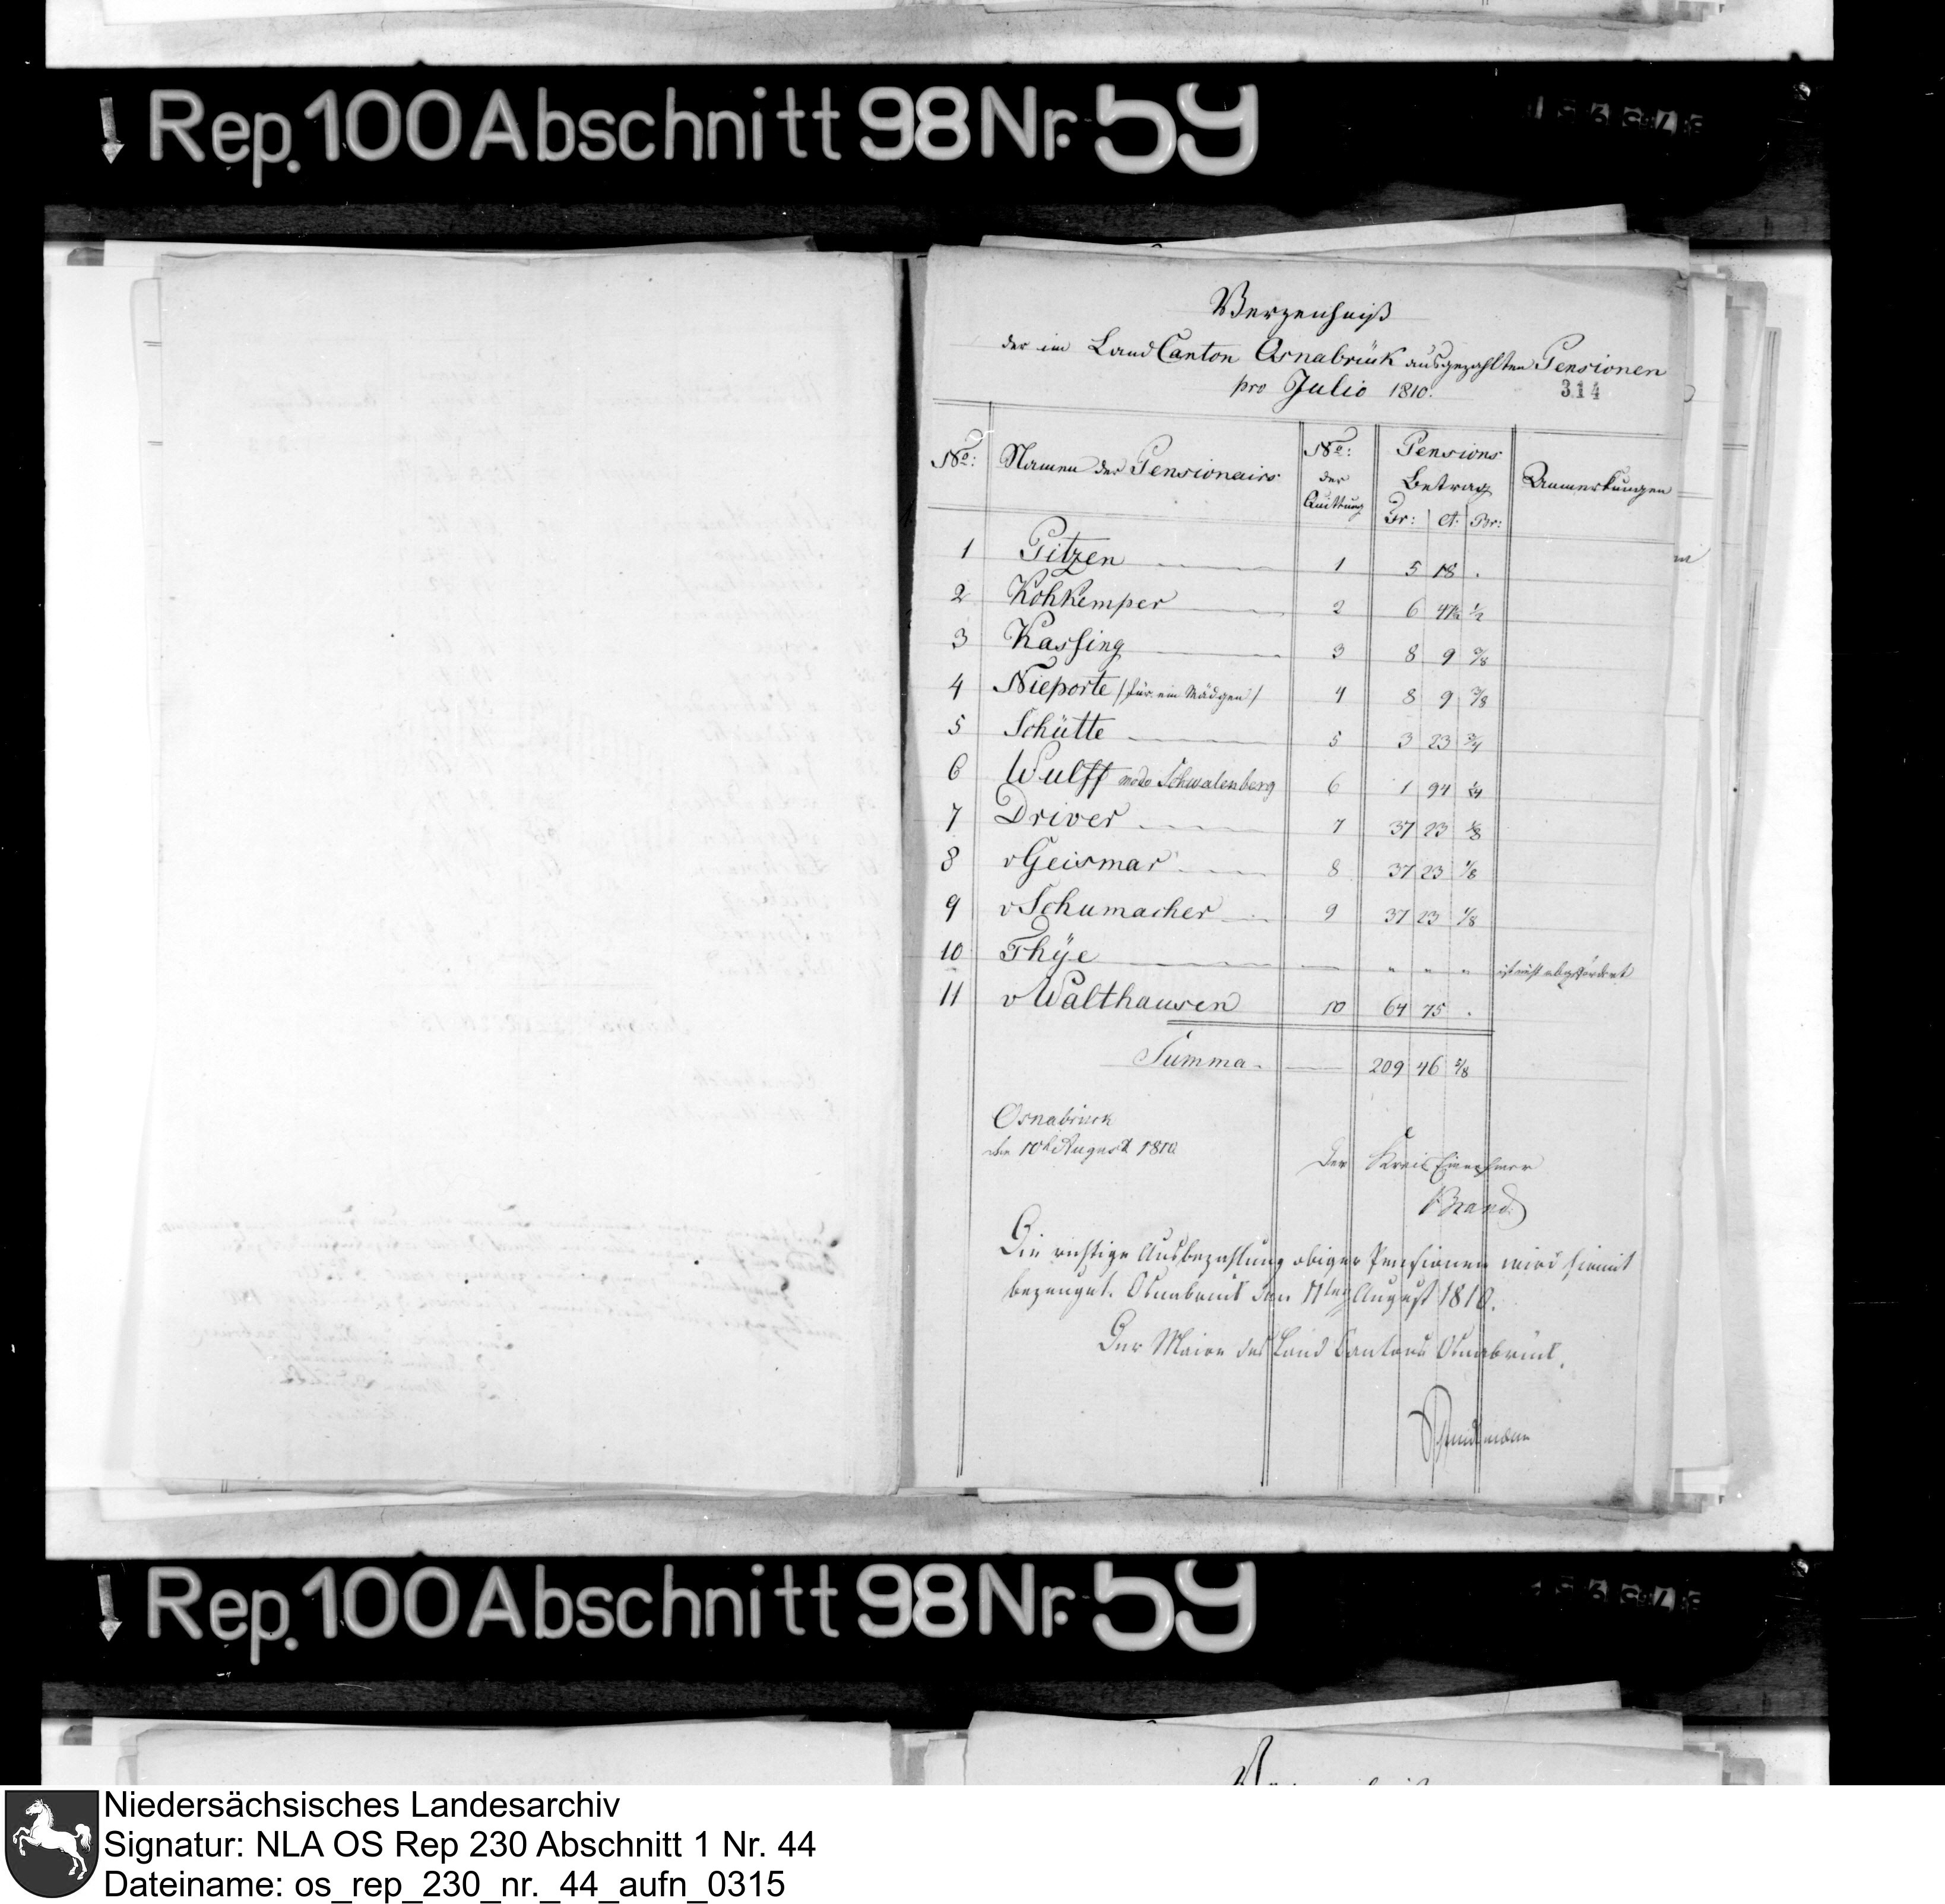 Rep. 100 Abschnitt 98 Nr. 59
Verzeichniß
der im Land Canton Osnabrück ausgezahlten Pensionen
pro Julio 1810.
314
No: Namen der Pensionairs No: der Quittung Pensions Betrag Fr: Ct: Br: Anmerkungen
1 Gitzen 1 5 18 .
2 Kohkemper 2 6 47 1/2
3 Kassing 3 8 9 3/8
4 Nieporte /für ein Mädgen/ 4 8 9 3/8
5 Schütte 5 3 23 3/4
6 Wulff modo Schwalenberg 6 1 94 1/4
7 Driver 7 37 23 1/8
8 v Geismar 8 37 23 1/8
9 v Schumacher 9 37 23 1/8
10 Thÿe — " " " ist nicht abgefordert
11 v Walthausen 10 64 75 .
Summa 209 46 5/8
Osnabrück
den 10t August 1810
Der Kreis Einnehmer
Brand
Die richtige Ausbezahlung obiger Pensionen wird hiemit
bezeuget. Osnabrück den 11ten August 1810.
Der Maire des Land Cantons Osnabrück.
Rep. 100 Abschnitt 98 Nr. 59
Niedersächsisches Landesarchiv
Signatur: NLA OS Rep 230 Abschnitt 1 Nr. 44
Dateiname: os_rep_230_nr._44_aufn_0315